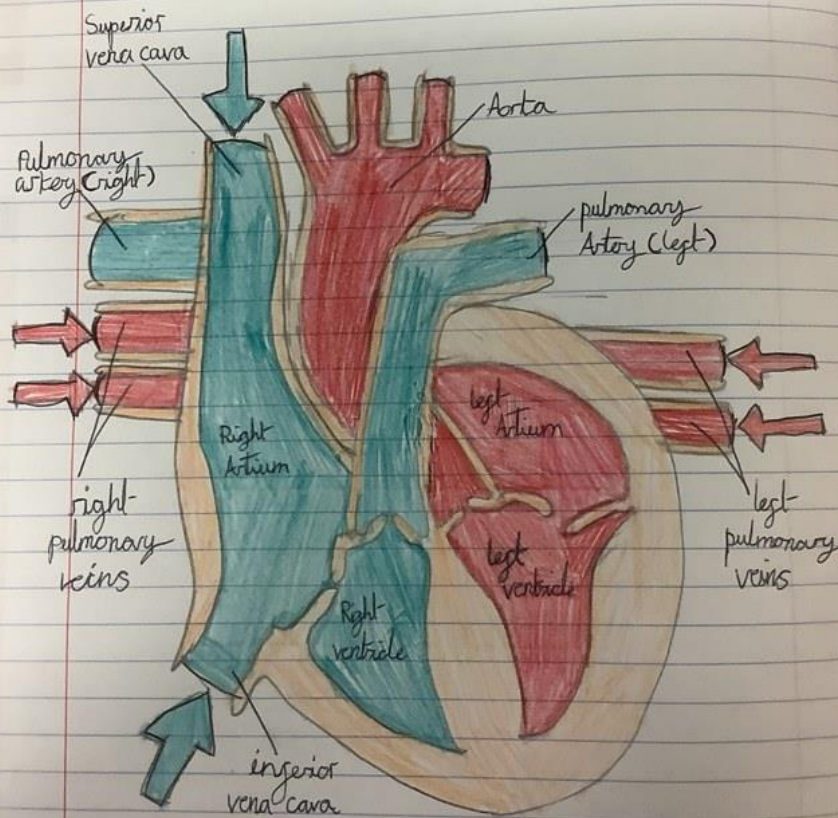 Superior
vena cava
Aorta
Pulmonary
artery (right)
pulmonary
Artery (left)
left
Artium
Right
Artium
right
pulmonary
veins
left
pulmonary
veins
left
ventricle
Right
ventricle
inferior
vena cava